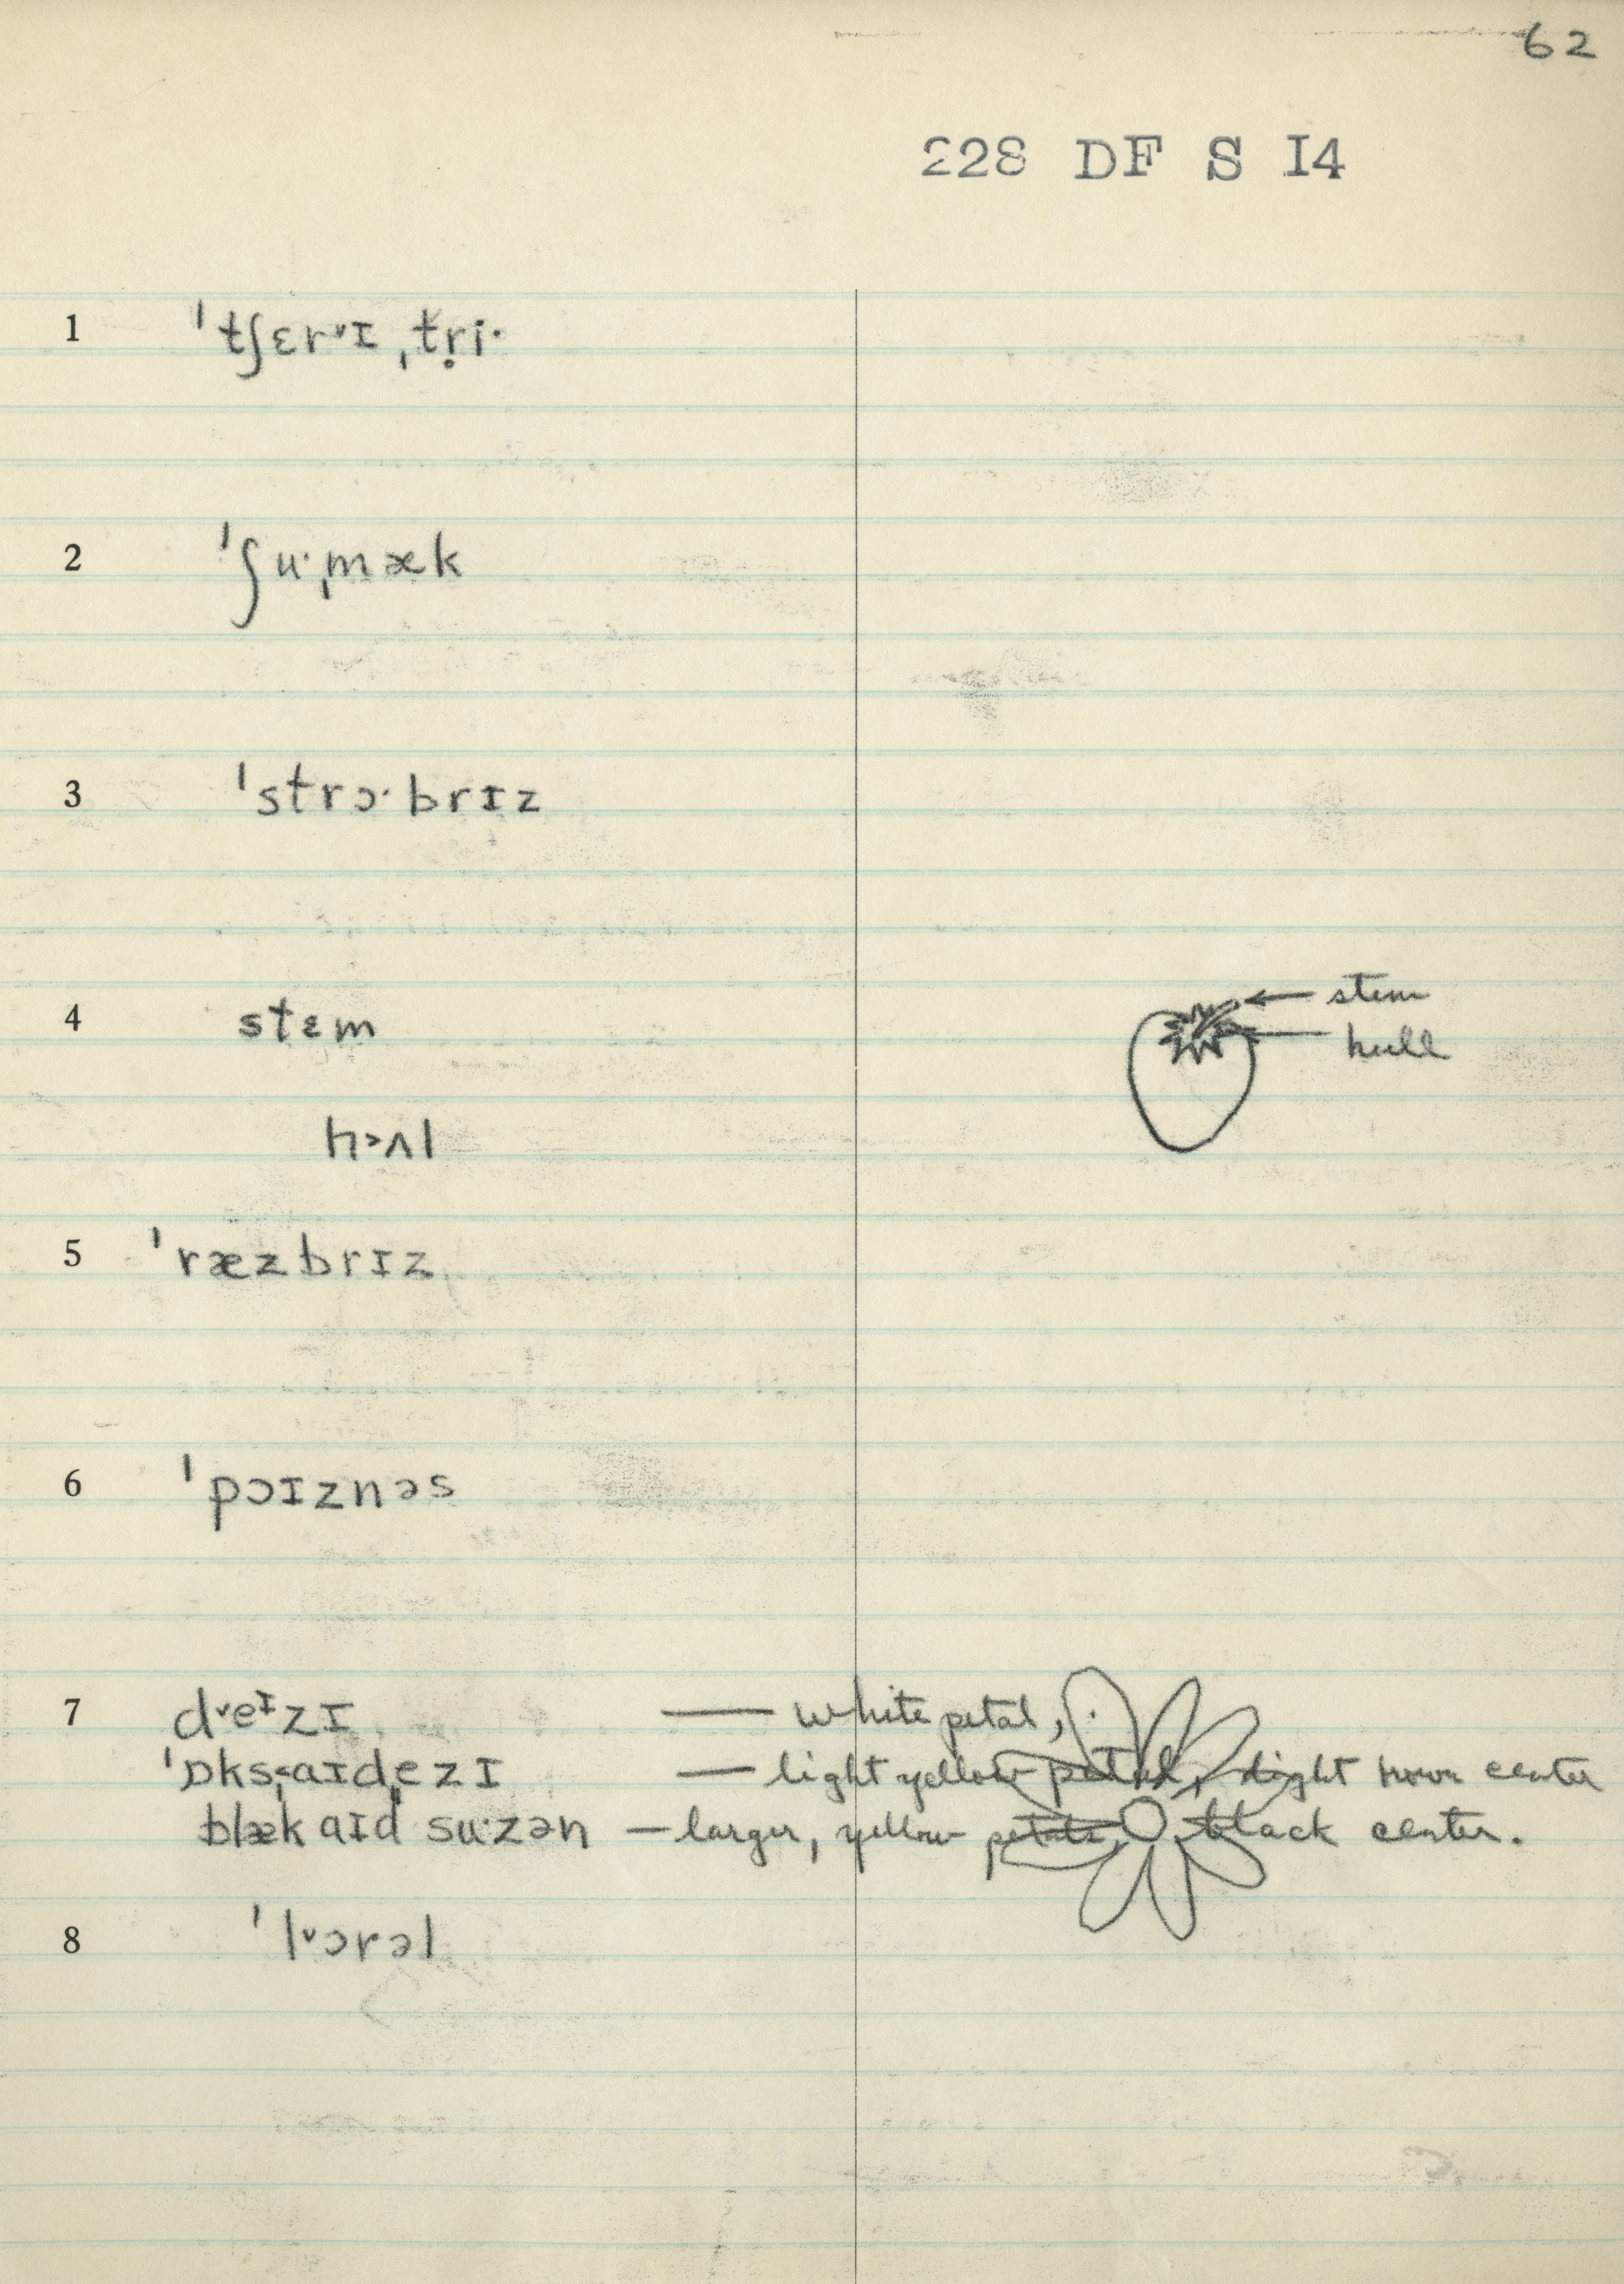 62
228 DF S I4
1 ˈtʃɛrᵛɪ ˌtr̥i·
2 ˈʃu·ˌmæk
3 ˈstrɔ·brɪz
4 stɛm
stem
hull
h˃ʌl
5 ˈræzbrɪz
6 ˈpɔɪznəs
7 dᵛeᶦzɪ — white petal,
ˈɒks˂ˌaɪdˌezɪ — light yellow petal, light brown center
blækaɪd su·zən — larger, yellow petals, black center.
8 ˈlᵛɔrəl